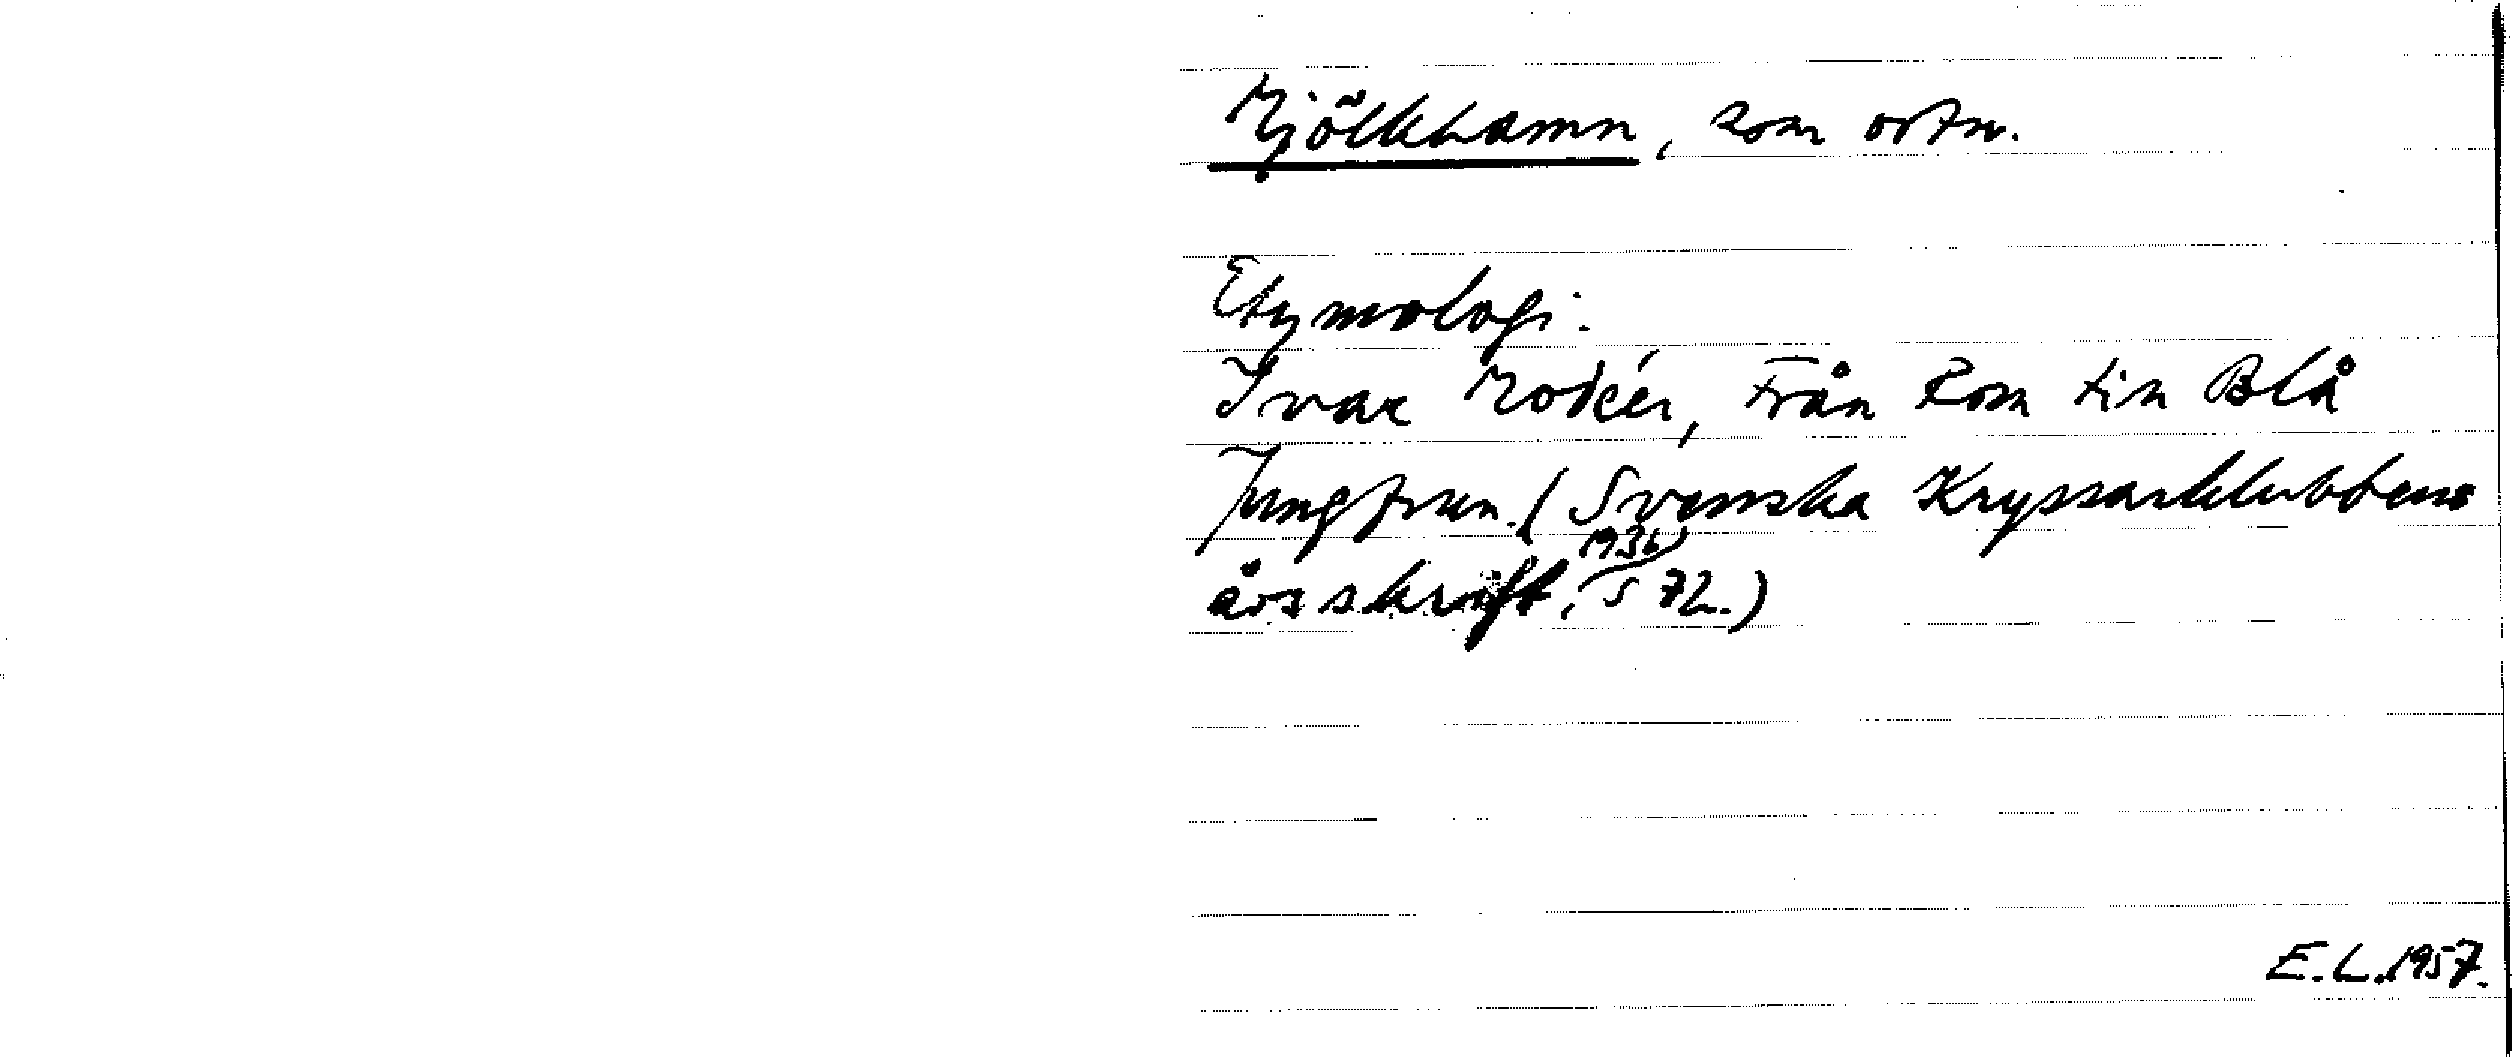 Mjölkhamn, som ortn.
Etymologi.
Ivar Modéer, Från Rom till Blå
Jungfrun. (Svenska Kryssarklubbens
årsskrift, 1936, s 72.)
E.L. 1957.